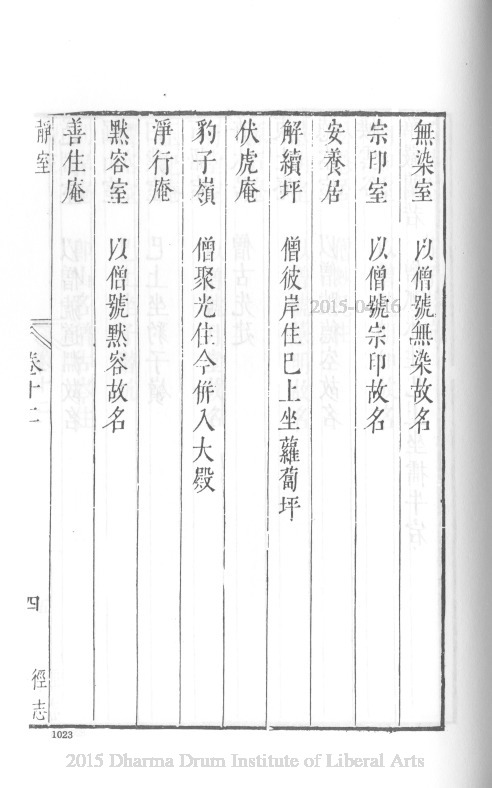 無染室　以僧號無染故名
宗印室　以僧號宗印故名
安養居
解續坪　僧彼岸住巳上坐蘿蔔坪
伏虎庵
豹子嶺　僧聚光住今併入大殿
淨行庵
默容室　以僧號默容故名
善住庵
靜室　卷十二　四　徑志
2015-04-16
1023
2015 Dharma Drum Institute of Liberal Arts